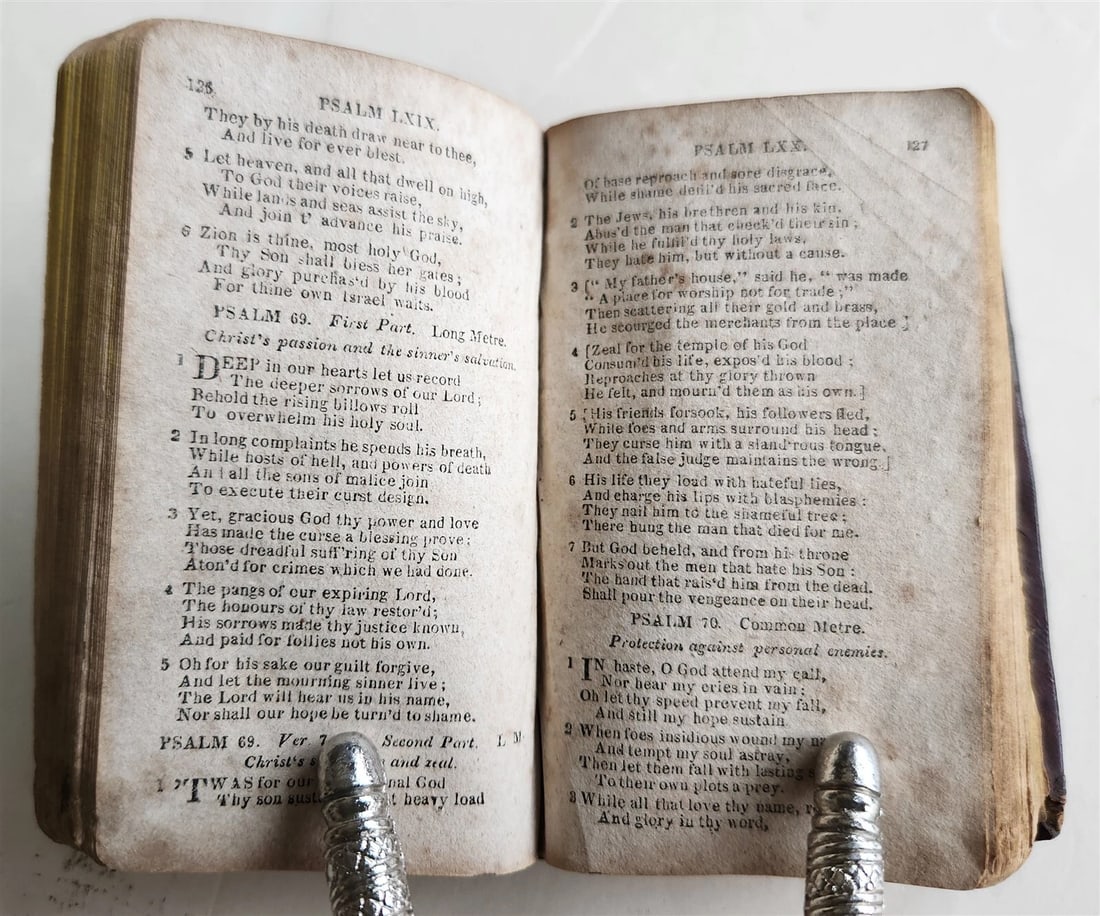 126
PSALM LXIX.
They by his death draw near to thee,
And live for ever blest.
5 Let heaven, and all that dwell on high,
To God their voices raise,
While lands and seas assist the sky,
And join t' advance his praise.
6 Zion is thine, most holy God,
Thy Son shall bless her gates;
And glory purchas'd by his blood
For thine own Israel waits.
PSALM 69. First Part. Long Metre.
Christ's passion and the sinner's salvation.
1 DEEP in our hearts let us record
The deeper sorrows of our Lord;
Behold the rising billows roll
To overwhelm his holy soul.
2 In long complaints he spends his breath,
While hosts of hell, and powers of death
And all the sons of malice join
To execute their curst design.
3 Yet, gracious God thy power and love
Has made the curse a blessing prove;
Those dreadful suff'ring of thy Son
Aton'd for crimes which we had done.
4 The pangs of our expiring Lord,
The honours of thy law restor'd;
His sorrows made thy justice known,
And paid for follies not his own.
5 Oh for his sake our guilt forgive,
And let the mourning sinner live;
The Lord will hear us in his name,
Nor shall our hope be turn'd to shame.
PSALM 69. Ver. 7 Second Part. L M
Christ's and zeal.
1 'TWAS for our God
Thy son heavy load
PSALM LXX.
127
Of base reproach and sore disgrace,
While shame defil'd his sacred face.
2 The Jews, his brethren and his kin,
Abus'd the man that check'd their sin;
While he fulfil'd thy holy laws,
They hate him, but without a cause.
3 [" My father's house," said he, " was made
" A place for worship not for trade;"
Then scattering all their gold and brass,
He scourged the merchants from the place ]
4 [Zeal for the temple of his God
Consum'd his life, expos'd his blood;
Reproaches at thy glory thrown
He felt, and mourn'd them as his own.]
5 [His friends forsook, his followers fled,
While foes and arms surround his head;
They curse him with a sland'rous tongue,
And the false judge maintains the wrong.]
6 His life they load with hateful lies,
And charge his lips with blasphemies:
They nail him to the shameful tree;
There hung the man that died for me.
7 But God beheld, and from his throne
Marks out the men that hate his Son:
The hand that rais'd him from the dead.
Shall pour the vengeance on their head.
PSALM 70. Common Metre.
Protection against personal enemies.
1 IN haste, O God attend my call,
Nor hear my cries in vain:
Oh let thy speed prevent my fall,
And still my hope sustain
2 When foes insidious wound my
And tempt my soul astray,
Then let them fall with lasting
To their own plots a prey.
3 While all that love thy name,
And glory in thy word,